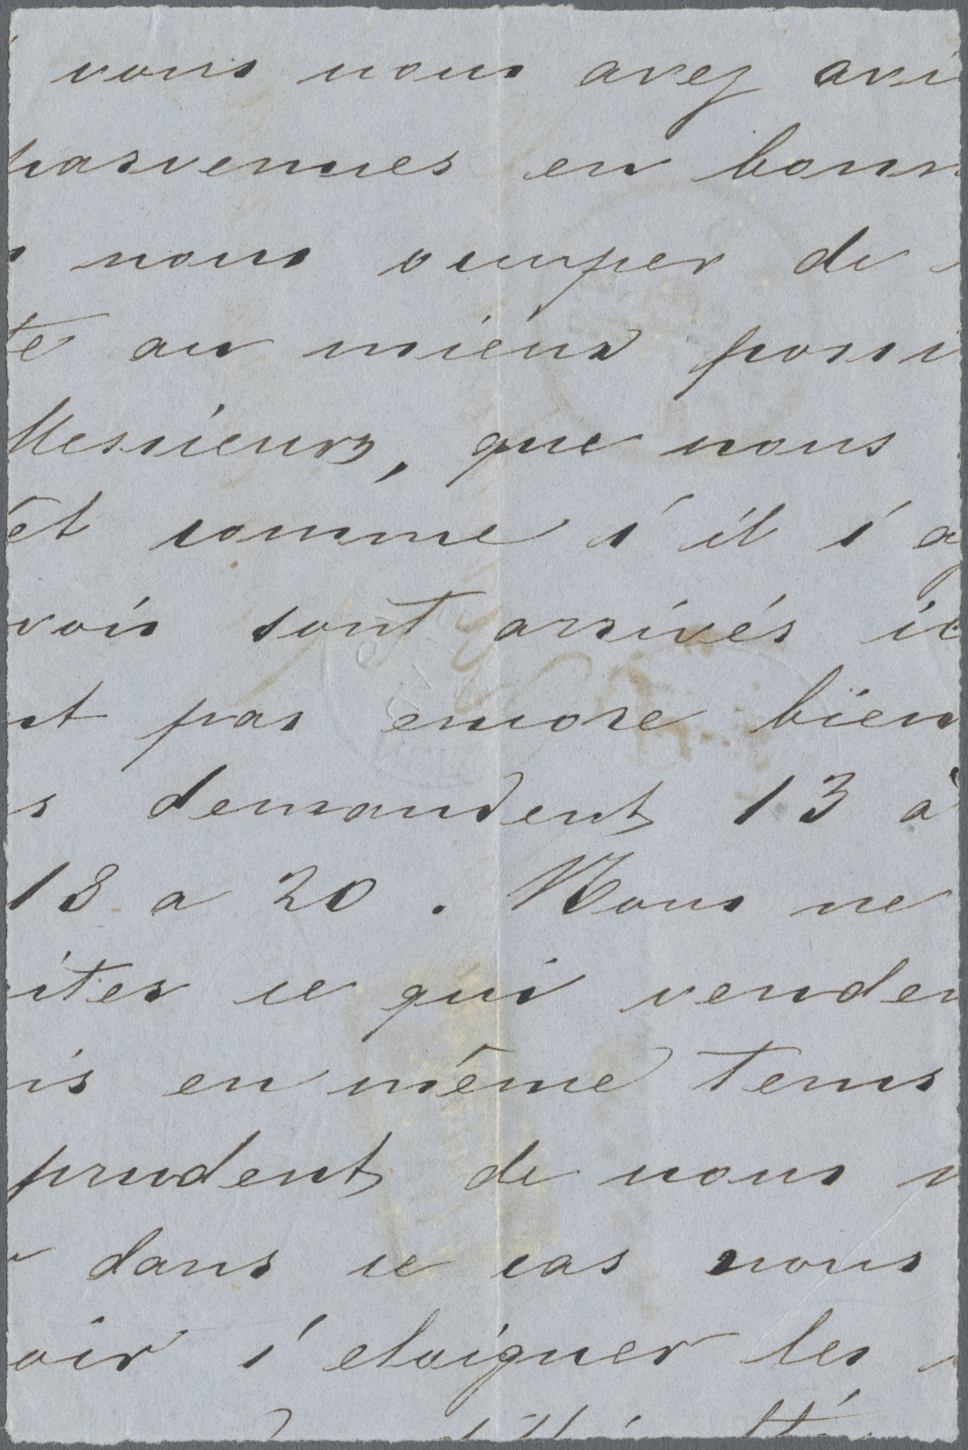 vous nous avez avi
parvenues en bonn
nous ocuuper de
te au mieux possi
Messieurs, que nous
êt comme s'il s'a
vois sont arrivés ic
nt pas encore bien
s demandent 13 à
18 a 20. Nous ne
ites ce qui venden
is en même tems
prudent de nous
dans ce cas nous
oir s'eloigner les